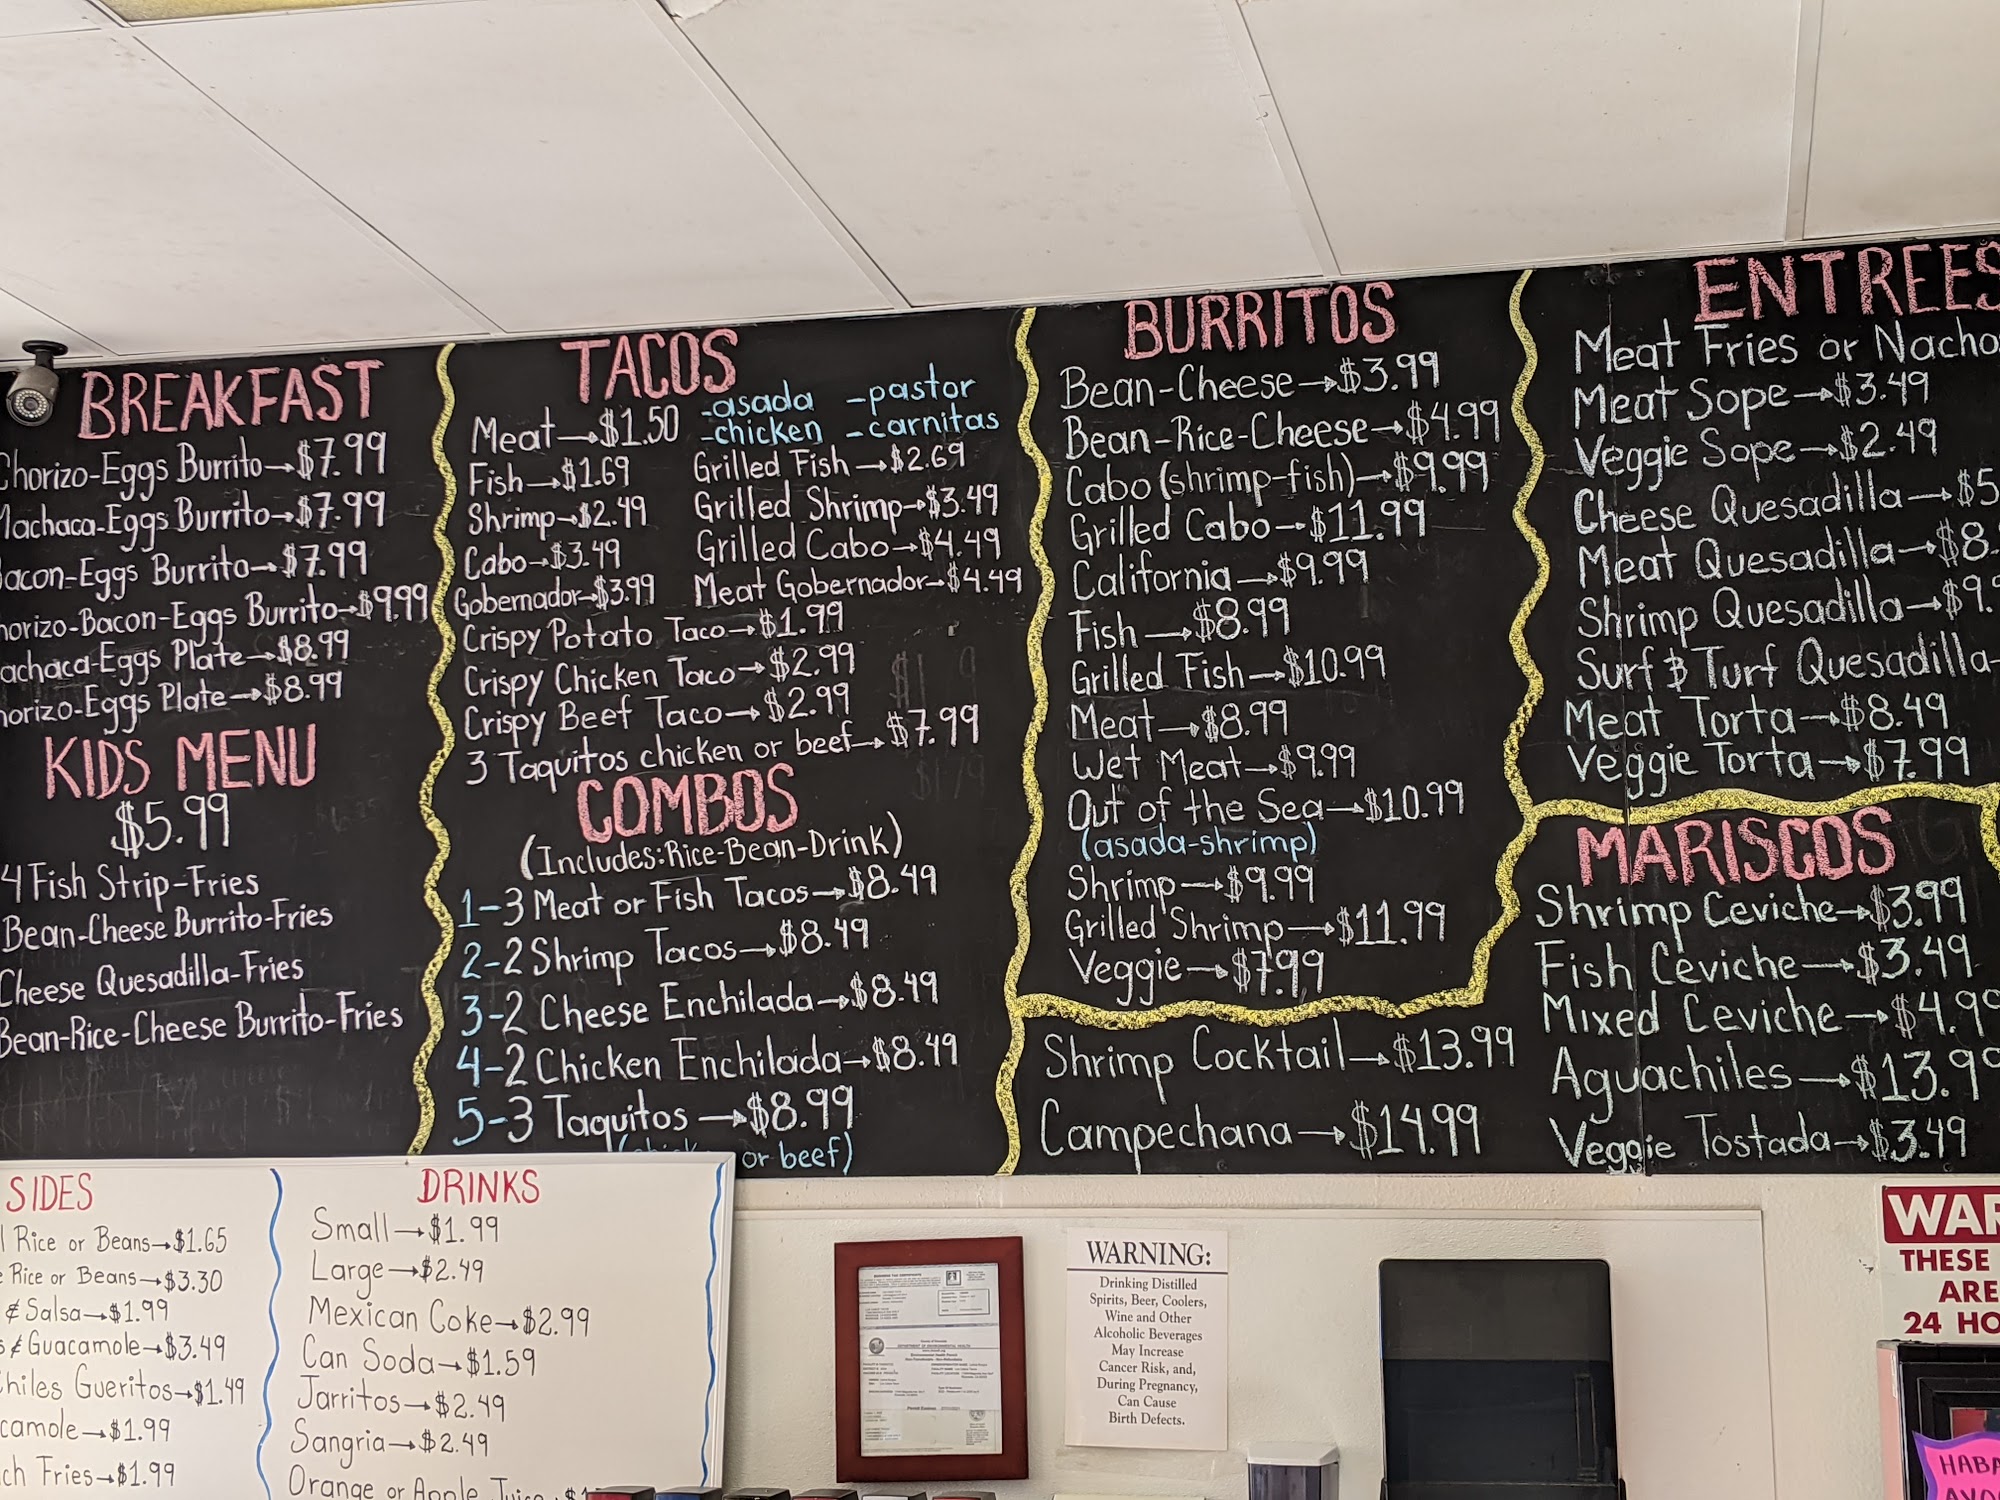 BREAKFAST
Chorizo-Eggs Burrito→$7.99
Machaca-Eggs Burrito→$7.99
Bacon-Eggs Burrito→$7.99
Chorizo-Bacon-Eggs Burrito→$9.99
Machaca-Eggs Plate→$8.99
Chorizo-Eggs Plate→$8.99
KIDS MENU
$5.99
4 Fish Strip-Fries
Bean-Cheese Burrito-Fries
Cheese Quesadilla-Fries
Bean-Rice-Cheese Burrito-Fries
TACOS
Meat→$1.50
-asada -pastor
-chicken -carnitas
Fish→$1.69
Shrimp→$2.49
Cabo→$3.49
Gobernador→$3.99
Grilled Fish→$2.69
Grilled Shrimp→$3.49
Grilled Cabo→$4.49
Meat Gobernador→$4.49
Crispy Potato Taco→$1.99
Crispy Chicken Taco→$2.99
Crispy Beef Taco→$2.99
3 Taquitos chicken or beef→$7.99
COMBOS
(Includes:Rice-Bean-Drink)
1-3 Meat or Fish Tacos→$8.49
2-2 Shrimp Tacos→$8.49
3-2 Cheese Enchilada→$8.49
4-2 Chicken Enchilada→$8.49
5-3 Taquitos→$8.99
or beef)
BURRITOS
Bean-Cheese→$3.99
Bean-Rice-Cheese→$4.99
Cabo (shrimp-fish)→$9.99
Grilled Cabo→$11.99
California→$9.99
Fish→$8.99
Grilled Fish→$10.99
Meat→$8.99
Wet Meat→$9.99
Out of the Sea→$10.99
(asada-shrimp)
Shrimp→$9.99
Grilled Shrimp→$11.99
Veggie→$7.99
Shrimp Cocktail→$13.99
Campechana→$14.99
ENTREES
Meat Fries or Nacho
Meat Sope→$3.49
Veggie Sope→$2.49
Cheese Quesadilla→$5
Meat Quesadilla→$8.
Shrimp Quesadilla→$9.
Surf & Turf Quesadilla
Meat Torta→$8.49
Veggie Torta→$7.99
MARISCOS
Shrimp Ceviche→$3.99
Fish Ceviche→$3.49
Mixed Ceviche→$4.99
Aguachiles→$13.99
Veggie Tostada→$3.49
SIDES
Rice or Beans→$1.65
Rice or Beans→$3.30
& Salsa→$1.99
& Guacamole→$3.49
Chiles Gueritos→$1.49
camole→$1.99
ch Fries→$1.99
DRINKS
Small→$1.99
Large→$2.49
Mexican Coke→$2.99
Can Soda→$1.59
Jarritos→$2.49
Sangria→$2.49
Orange or Apple Juice
WARNING:
Drinking Distilled
Spirits, Beer, Coolers,
Wine and Other
Alcoholic Beverages
May Increase
Cancer Risk, and,
During Pregnancy,
Can Cause
Birth Defects.
WAR
THESE
ARE
24 HO
HABA
AVO